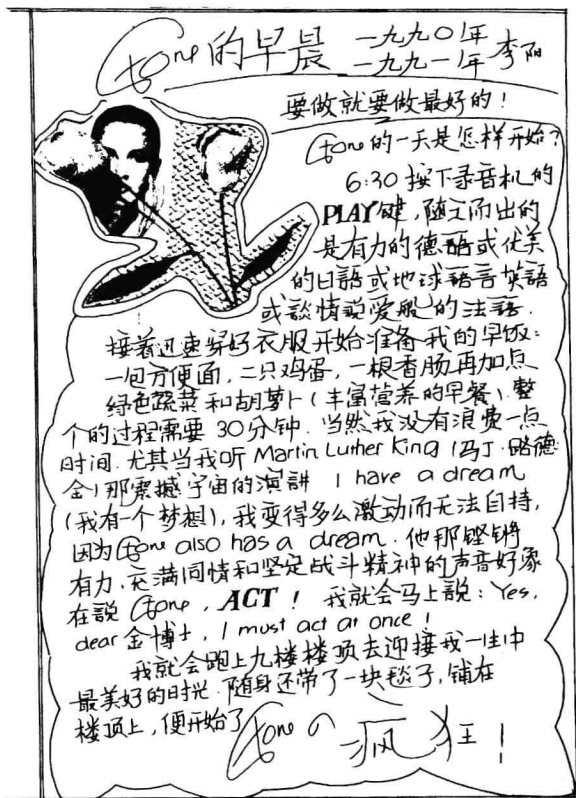 Stone的早晨 一九九〇年
一九九一年 李阳
要做就要做最好的！
Stone的一天是怎样开始？
6:30 按下录音机的
PLAY键，随之而出的
是有力的德語或优美
的日語或地球語言英語
或談情説爱般的法語．
接着迅速穿好衣服开始准备我的早饭：
一包方便面，二只鸡蛋，一根香肠再加点
绿色蔬菜和胡萝卜（丰富营养的早餐）．整
个的过程需要 30分钟．当然我没有浪费一点
时间．尤其当我听 Martin Luther King（马丁·路德
金）那震撼宇宙的演讲 I have a dream
（我有一个梦想），我变得多么激动而无法自持，
因为 Stone also has a dream．他那铿锵
有力、充满同情和坚定战斗精神的声音好象
在説 Stone，ACT！ 我就会马上説：Yes，
dear 金博士，I must act at once！
我就会跑上九楼楼顶去迎接我一生中
最美好的时光．随身还带了一块毯子，铺在
楼顶上，便开始了
Stone の 疯狂！